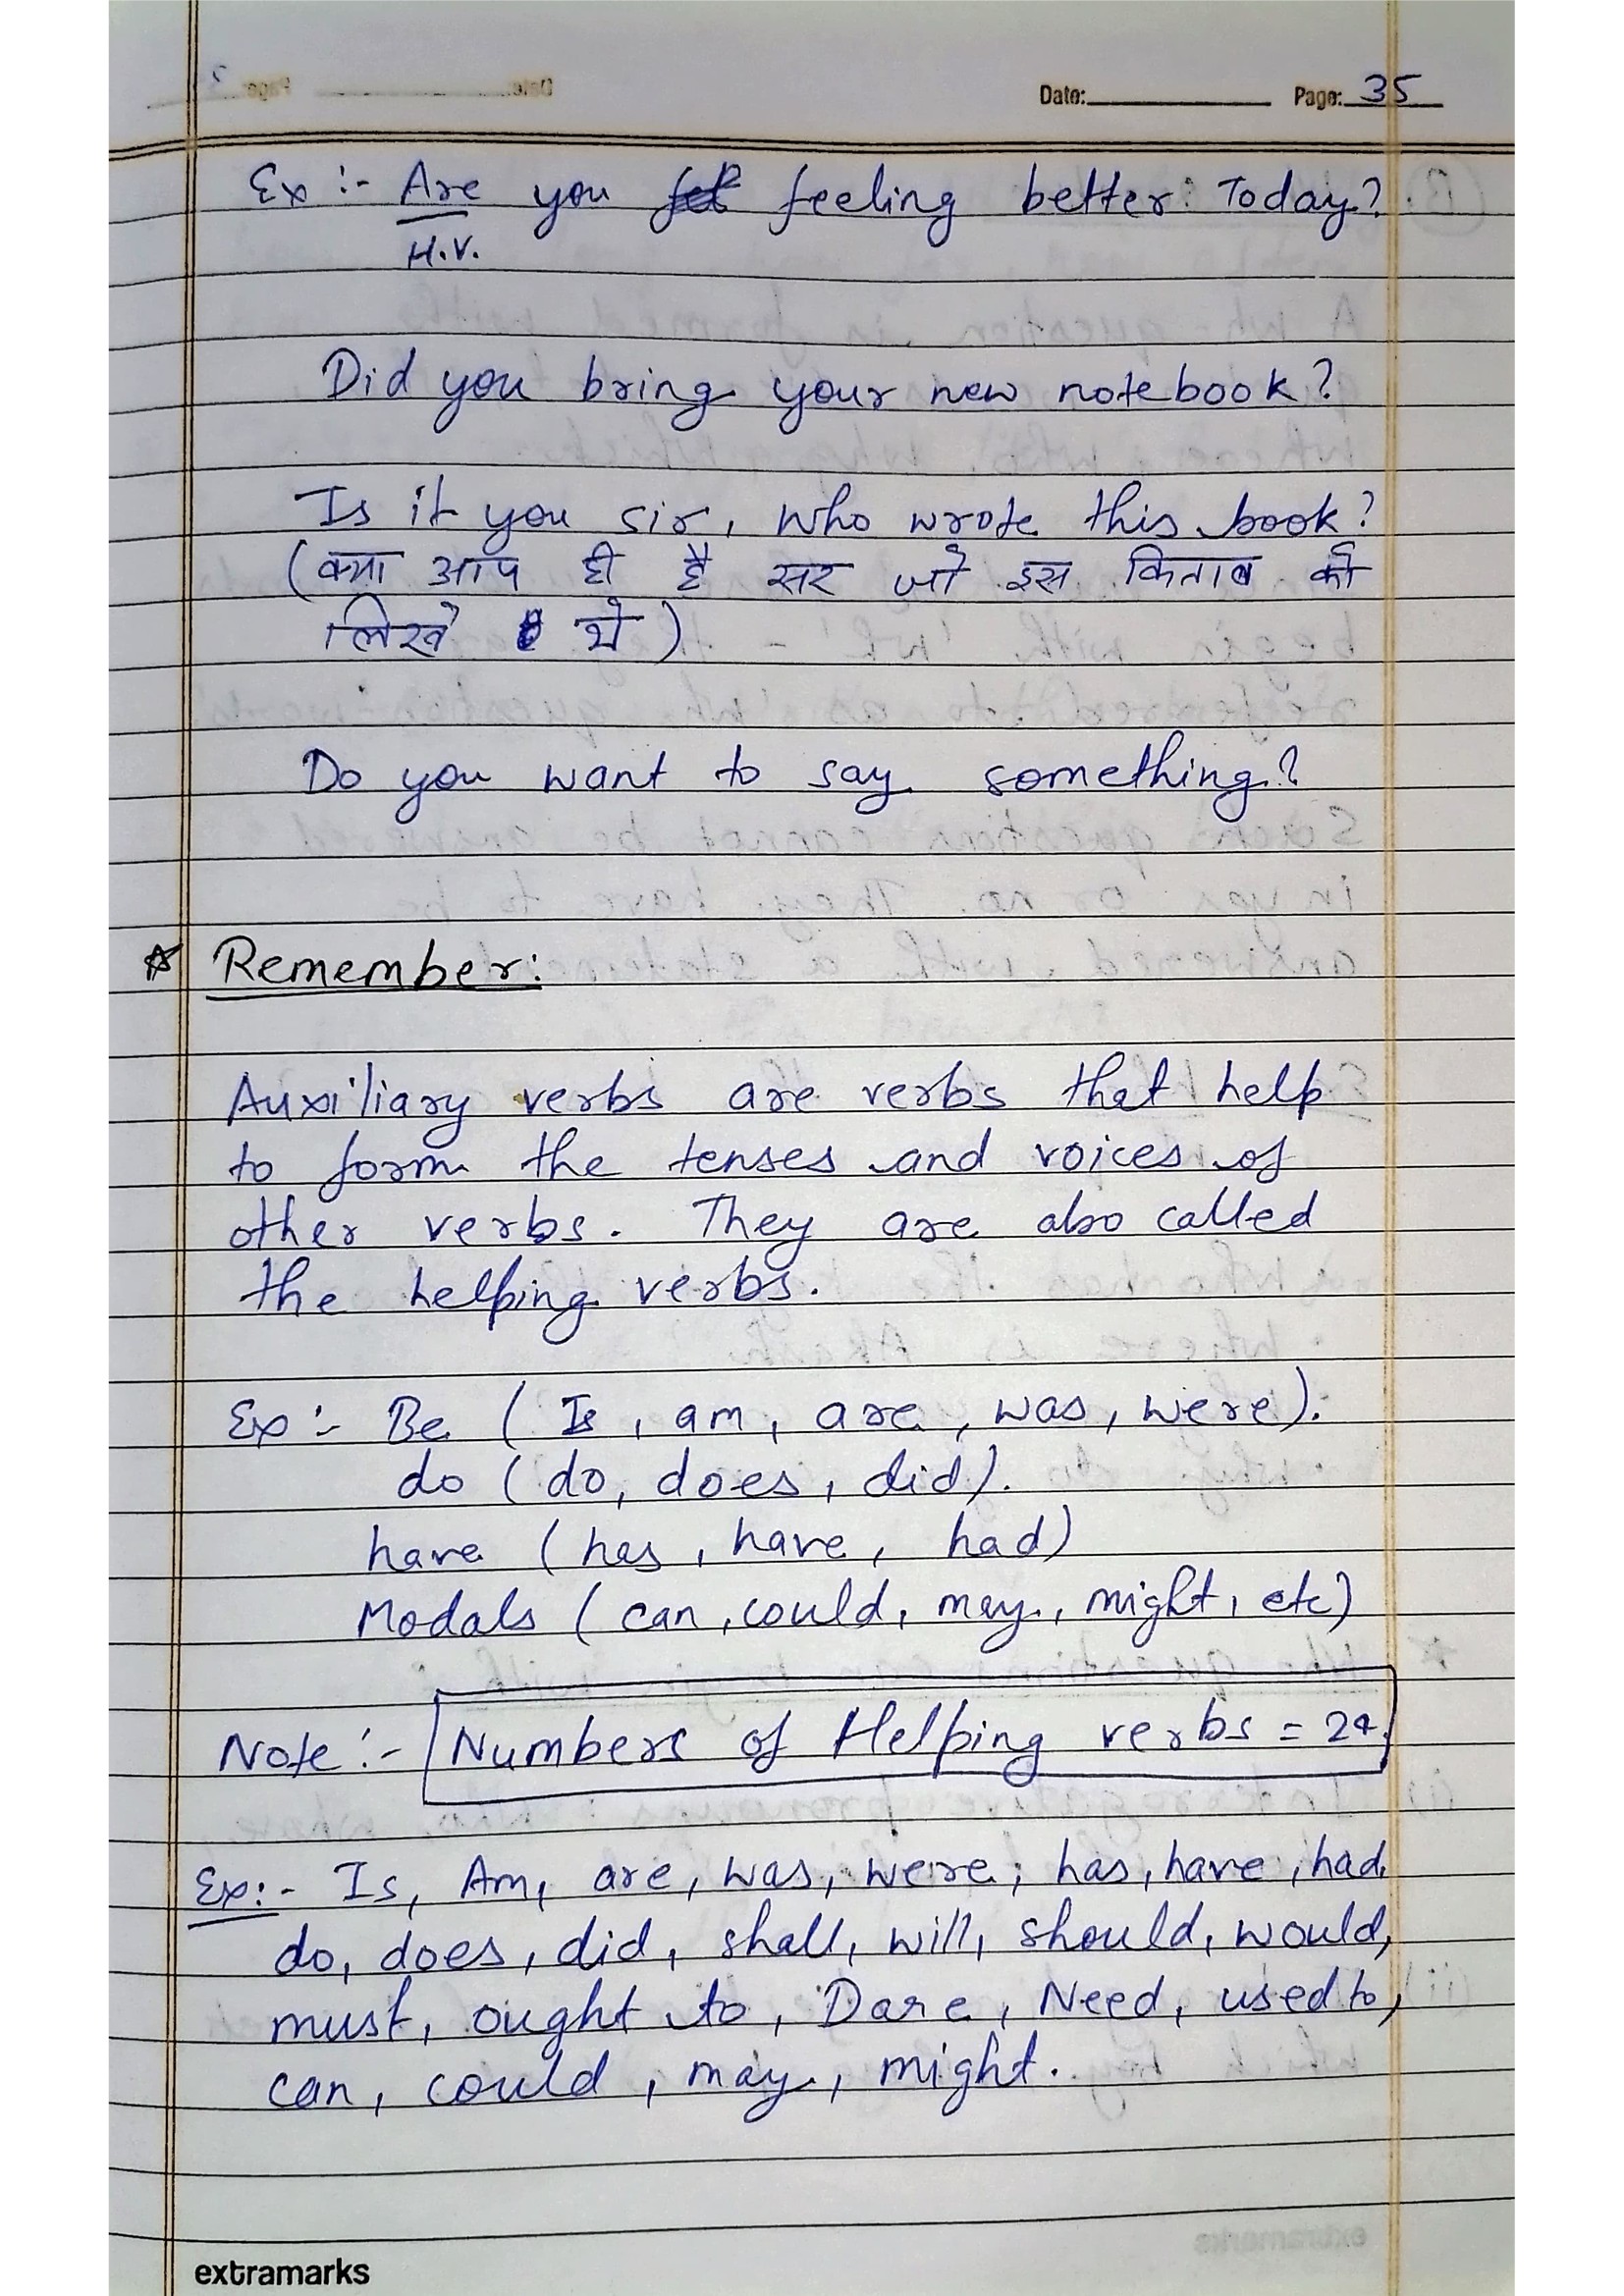 Date: Page: 35
Ex :- Are you feeling better Today?
H.V.
Did you bring your new notebook?
Is it you sir, who wrote this book?
(क्या आप ही है सर जो इस किताब को
लिखे थे)
Do you want to say something?
☆ Remember:
Auxiliary verbs are verbs that help
to form the tenses and voices of
other verbs. They are also called
the helping verbs.
Ex :- Be ( Is, am, are, was, were).
do (do, does, did).
have (has, have, had)
Modals ( can, could, may, might, etc)
Note :- Numbers of Helping verbs = 24.
Ex:- Is, Am, are, was, were, has, have, had,
do, does, did, shall, will, should, would,
must, ought to, Dare, Need, used to,
can, could, may, might.
extramarks